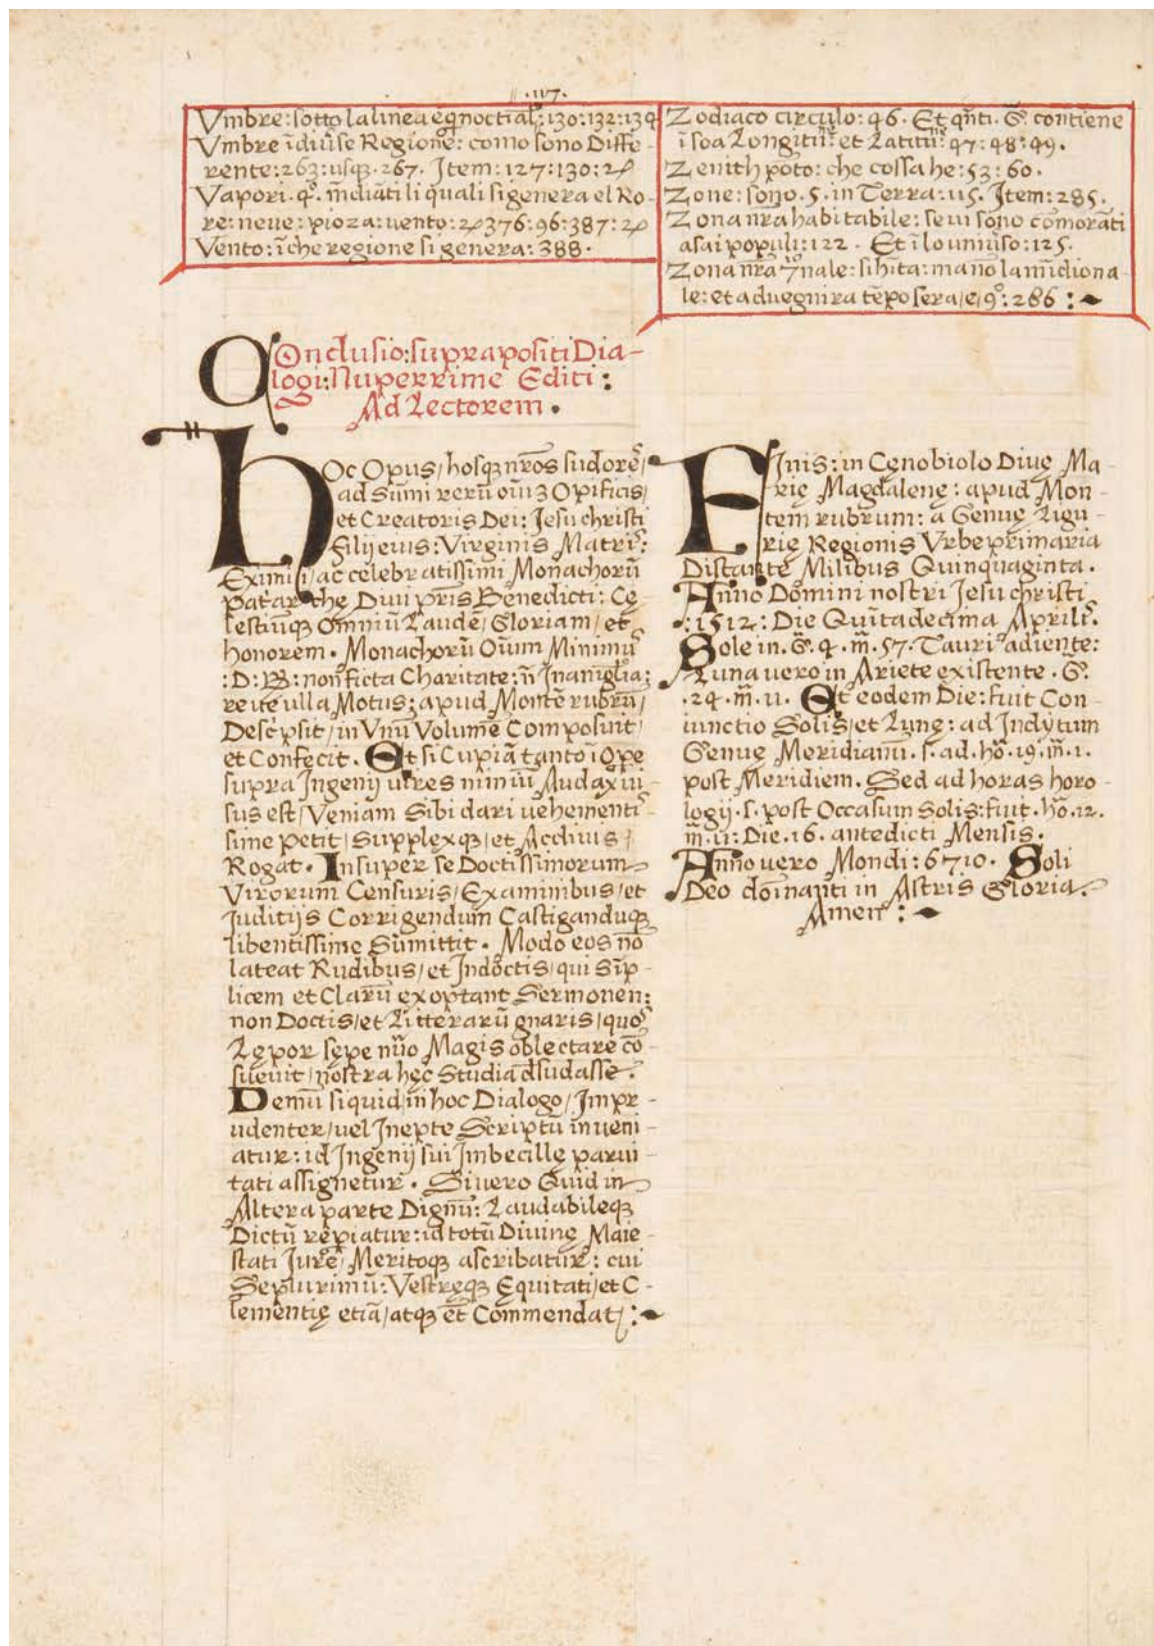 .117.
Vmbre: sotto la linea eq̃noctial̃: 130: 132: 134
Vmbre ĩ diũse Regione: como sono Diffe-
rente: 263: usqꝫ. 267. Item: 127: 130:
Vapori. q̊. m̃diãti li quali si genera el Ro-
re: neue: pioza: uento: 376: 96: 387:
Vento: ĩ che regione si genera: 388.
Zodiaco circulo: 46. Et qñti. G̃. contiene
ĩ soa Longitũe: et Latitũe: 47: 48: 49.
Zenith põto: che cossa he: 53: 60.
Zone: sono. 5. in Terra: 115. Item: 285.
Zona nr̃a habitabile: se ui sono cõmorãti
asai populi: 122. Et ĩ lo uniũso: 125.
Zona nr̃a nale: si hĩta: ma nõ la mĩdiona-
le: et aduegnira tẽpo sera/e/9̊: 286:
Conclusio: suprapositi Dia-
logi: Nuperrime Editi:
Ad Lectorem.
Hoc Opus/ hosqꝫ nr̃os sudorẽ/
ad Sũmi rerũ oĩuꝫ Opificis/
et Creatoris Dei: Jesu christi
filij eius: Virginis Matrĩ:
Eximij/ ac celebratissimi Monachorũ
patarche Diui pr̃is Benedicti: Cę-
lestiũqꝫ Omniũ Laudẽ/ Gloriam/ et
honorem. Monachorũ Oĩum Minimũ
:D: B: non ficta Charitate: ñ Inani glĩa:
reue ulla Motus: apud Montẽ rubrũ/
Descp̃sit/ in Vnũ Volumẽ Composuit/
et Confecit. Et si Cupiã tanto ĩ Ope
supra Ingenij uires nimiũ Audax ui-
sus est/ Veniam Sibi dari uehementi-
sime petit/ Supplexqꝫ/ et Acclius/
Rogat. Insuper se Doctissimorum
Virorum Censuris/ Examinibus/ et
Juditijs Corrigendum Castigandũqꝫ
libentissime Sũmittit. Modo eos nõ
lateat Rudibus/ et Indoctis/ qui Sĩp-
licem et Clarũ exoptant Sermonen:
non Doctis/ et Litterarũ gnaris/ quos̃
Lępor sępe nũo Magis oblectare cõ-
sueuit/ nostra hęc Studia d̃sudasse.
Demũ si quid/ in hoc Dialogo/ Impr-
udenter/ uel Inepte Scriptũ inueni-
atur: id Ingenij sui Imbecillę parui-
tati assignetur. Si uero Quid in
Altera parte Dignũ: Laudabileqꝫ
Dictũ rep̃iatur: id totũ Diuinę Maie-
stati Jure/ Meritoqꝫ ascribatur: cui
Se plurimũ: Vestręqꝫ Ęquitati/ et C-
lementię etiã/ atqꝫ etf̃ Commendat:
Finis: in Cęnobiolo Diuę Ma-
rię Magdalenę: apud Mon-
tem rubrum: a Genuę Ligu-
rię Regionis Vrbe primaria
Distante Milibus Quinquaginta.
Anno Domini nostri Jesu christi
:1512: Die Quĩtadecima Aprilĩ.
Sole in. G̃. 4. m̃. 57. Tauri adiente:
Luna uero in Ariete existente. G̃.
.24. m̃. 11. Et eodem Die: fuit Con-
iunctio Solis/ et Lunę: ad Indytum
Genuę Meridianũ. s. ad. hõ. 19. m̃. 1.
post Meridiem. Sed ad horas horo-
logij. s. post Occasum Solis: fuit. hõ. 12.
m̃. 11: Die. 16. antedicti Mensis.
Anno uero Mondi: 6710. Soli
Deo dom̃inanti in Astris Gloria.
Amen: